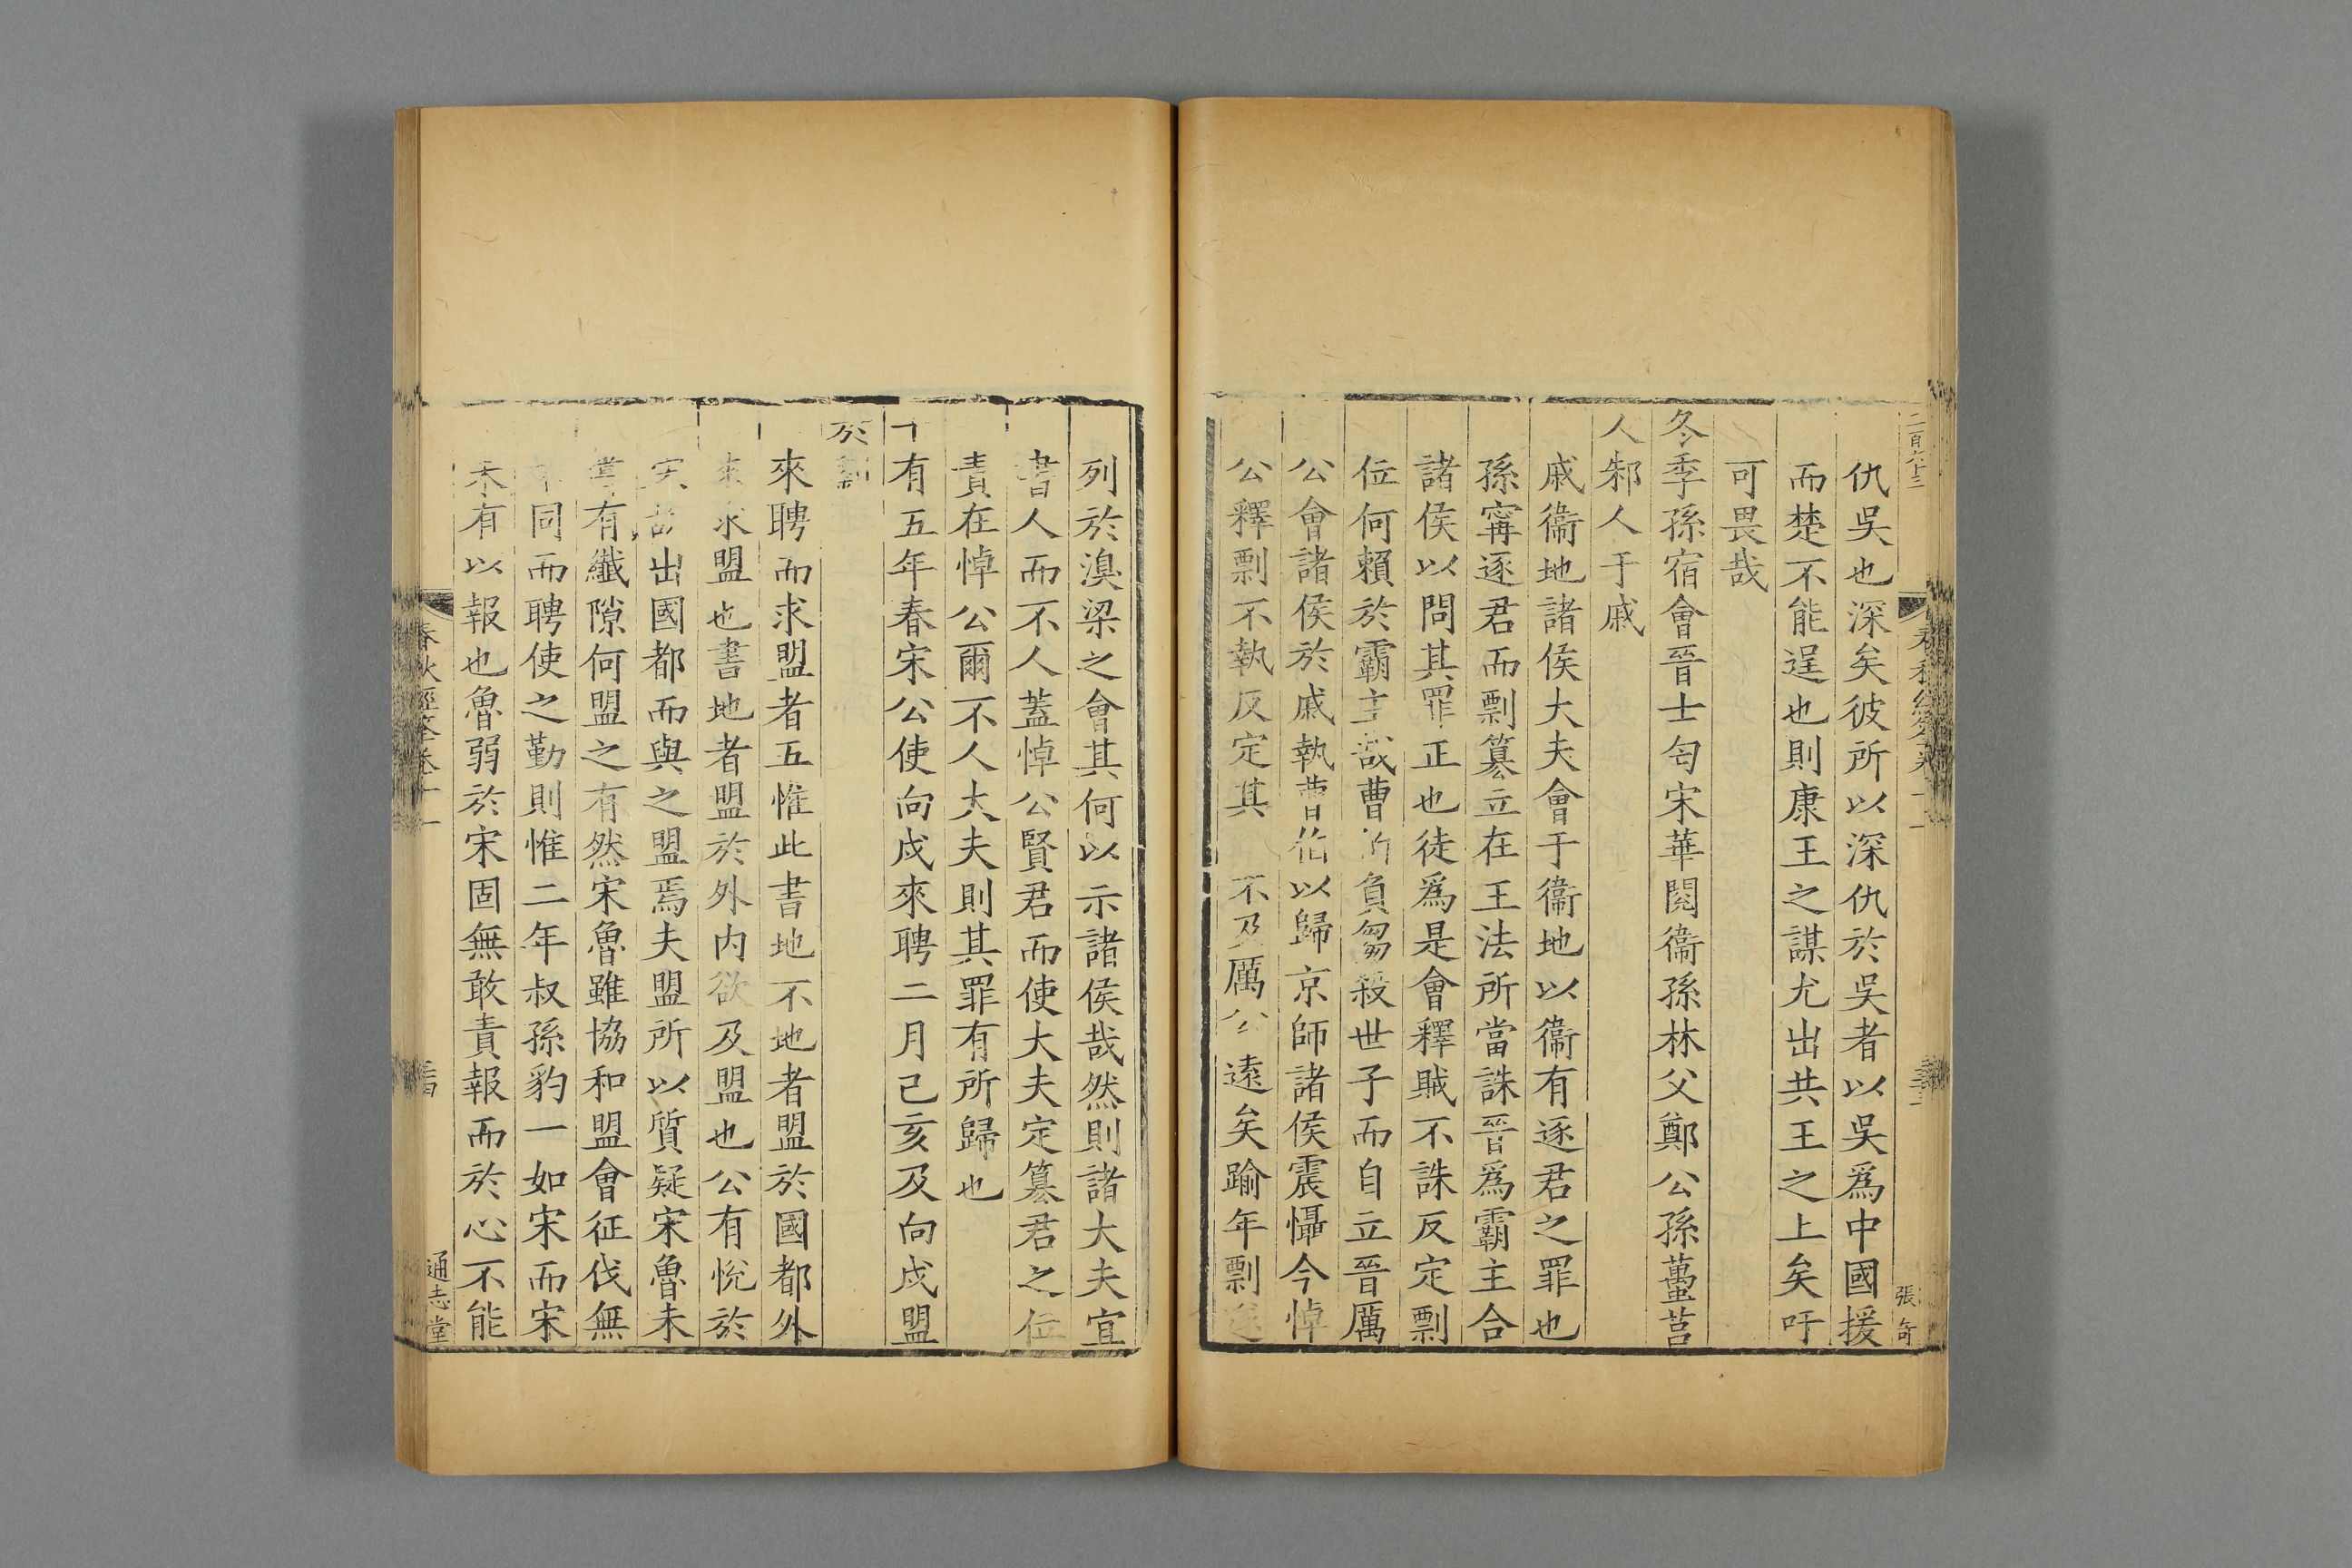 二百六十三
張奇
仇吳也深矣彼所以深仇於吳者以吳爲中國援
而楚不能逞也則康王之謀尤出共王之上矣吁
可畏哉
冬季孫宿會晉士匄宋華閱衞孫林父鄭公孫蠆莒
人邾人于戚
戚衞地諸侯大夫會于衞地以衞有逐君之罪也
孫甯逐君而剽篡立在王法所當誅晉爲霸主合
諸侯以問其罪正也徒爲是會釋賊不誅反定剽
位何賴於霸主哉曹負芻殺世子而自立晉厲
公會諸侯於戚執曹伯以歸京師諸侯震懾今悼
公釋剽不執反定其不及厲公遠矣踰年剽
列於溴梁之會其何以示諸侯哉然則諸大夫宜
書人而不人蓋悼公賢君而使大夫定篡君之位
責在悼公爾不人大夫則其罪有所歸也
十有五年春宋公使向戌來聘二月己亥及向戌盟
於劉
來聘而求盟者五惟此書地不地者盟於國都外
來求盟也書地者盟於外内欲及盟也公有悅於
出國都而與之盟焉夫盟所以質疑宋魯未
嘗有纖隙何盟之有然宋魯雖協和盟會征伐無
同而聘使之勤則惟二年叔孫豹一如宋而宋
未有以報也魯弱於宋固無敢責報而於心不能
春秋經筌卷十一
通志堂